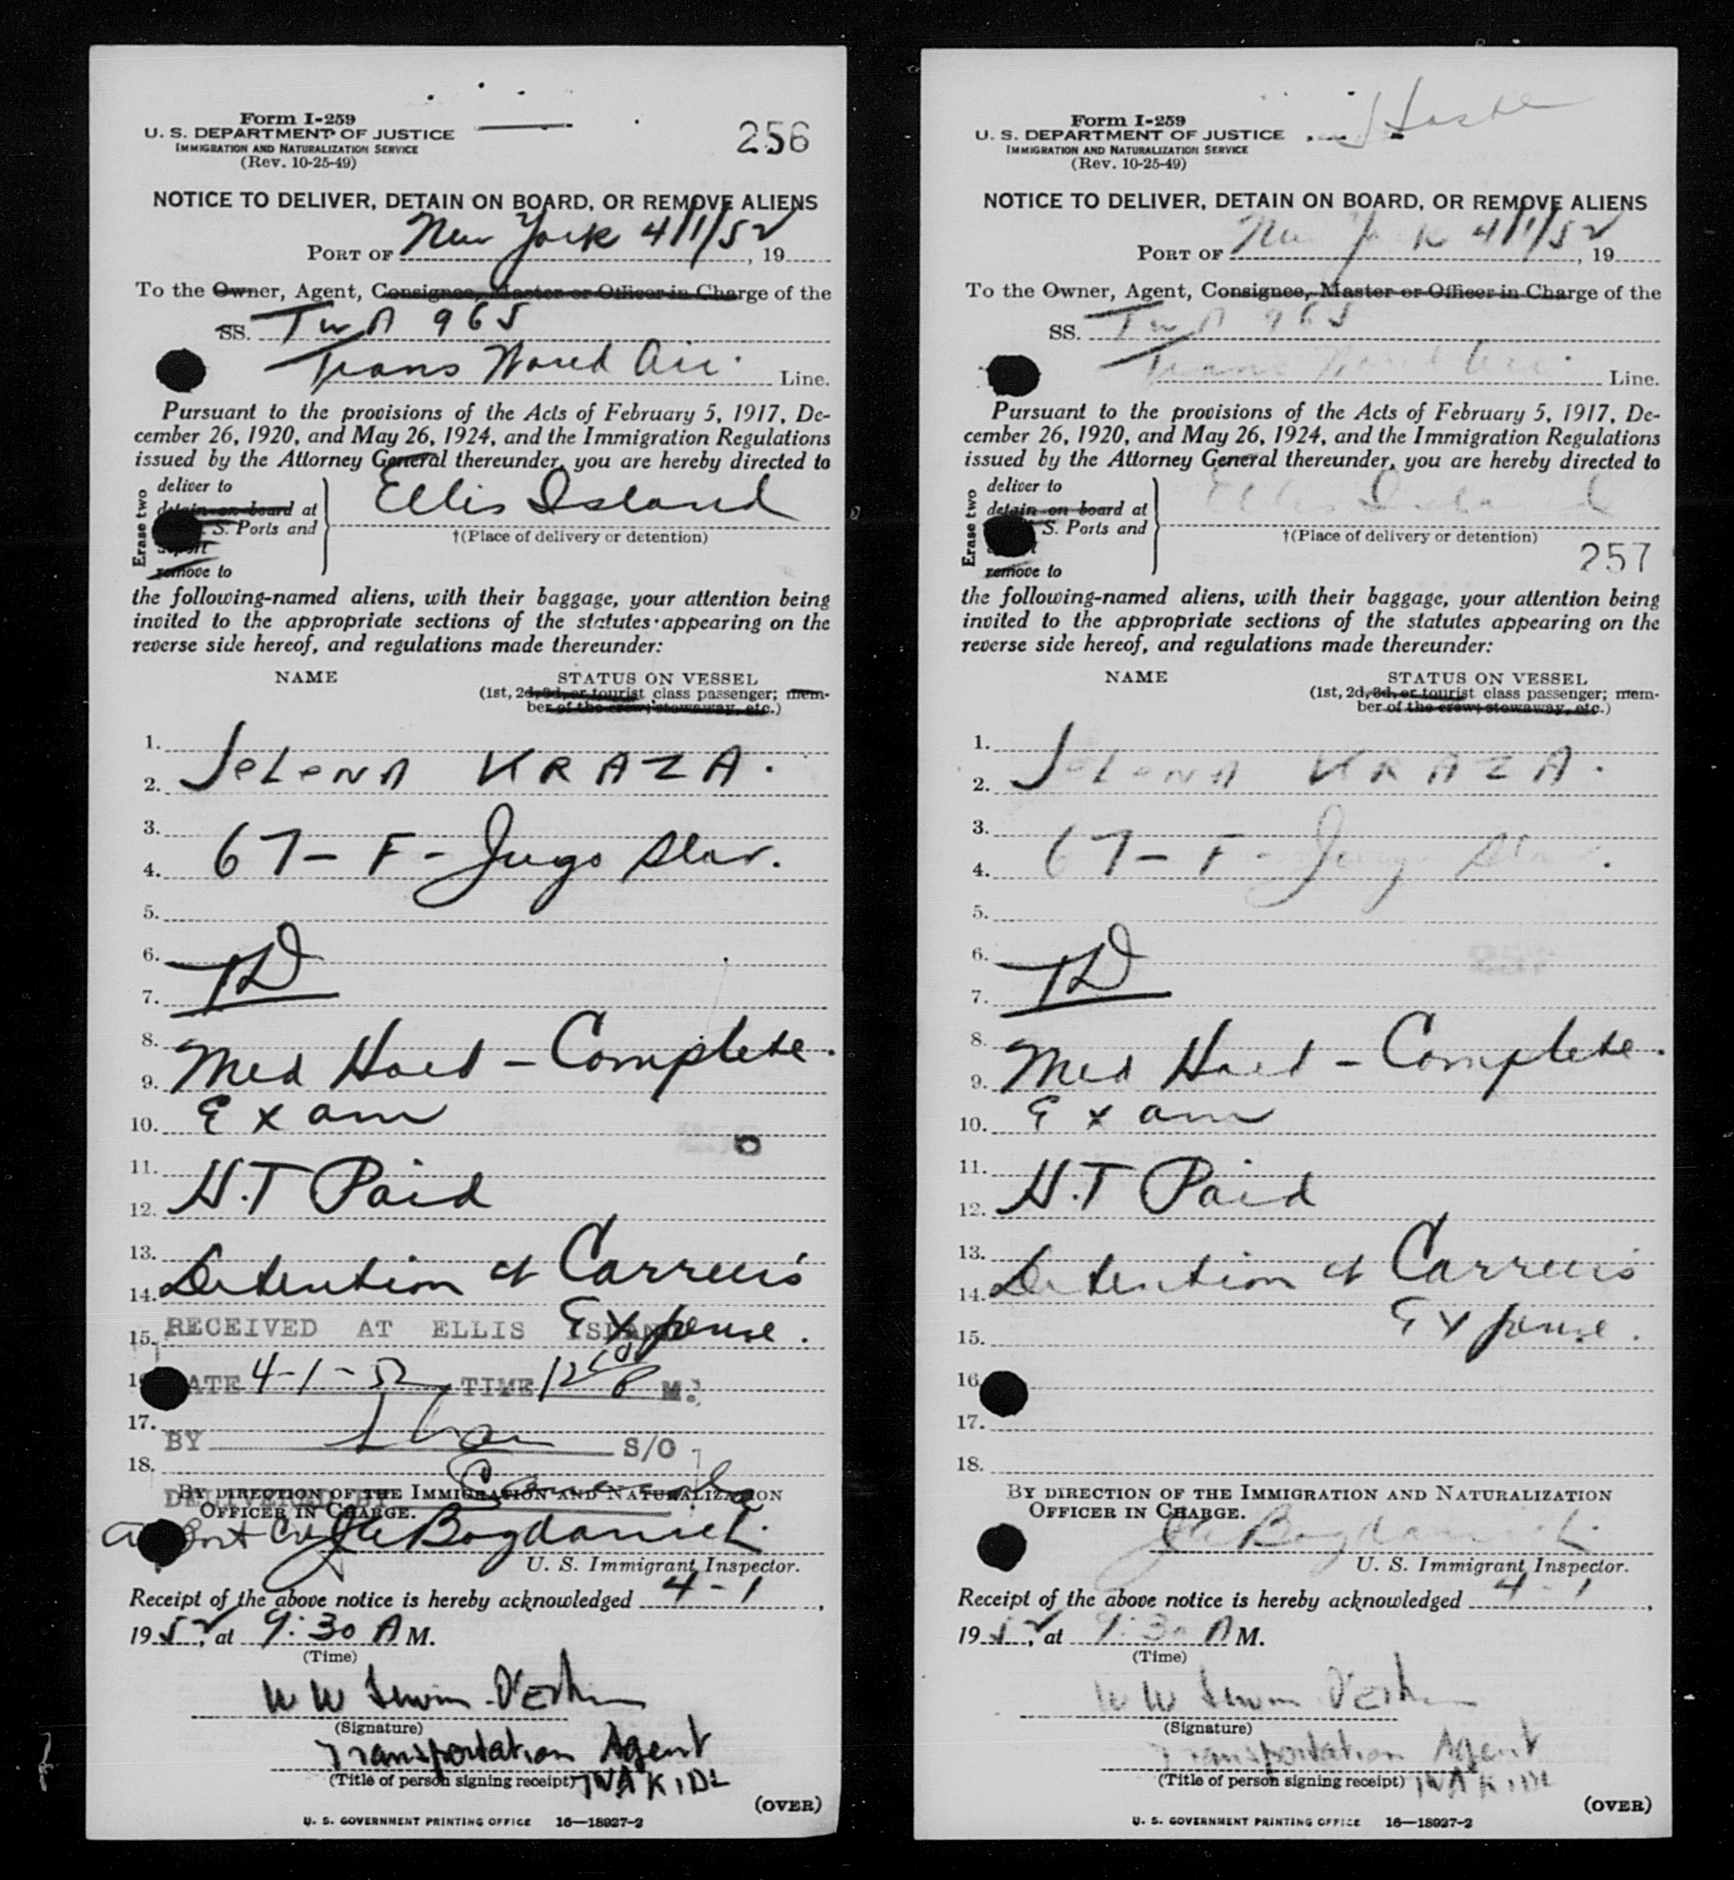 Form I-259
U. S. DEPARTMENT OF JUSTICE
IMMIGRATION AND NATURALIZATION SERVICE
(Rev. 10-25-49)
256
NOTICE TO DELIVER, DETAIN ON BOARD, OR REMOVE ALIENS
PORT OF New York 4/1/52, 19
To the Owner, Agent, Consignee, Master or Officer in Charge of the
SS. TWA 965
Trans World Air. Line.
Pursuant to the provisions of the Acts of February 5, 1917, De-
cember 26, 1920, and May 26, 1924, and the Immigration Regulations
issued by the Attorney General thereunder, you are hereby directed to
Erase two
deliver to
detain on board at
S. Ports and
remove to
Ellis Island
†(Place of delivery or detention)
the following-named aliens, with their baggage, your attention being
invited to the appropriate sections of the statutes appearing on the
reverse side hereof, and regulations made thereunder:
NAME STATUS ON VESSEL
(1st, 2d, 3d, or tourist class passenger; mem-
ber of the crew; stowaway, etc.)
1.
JeLeNA KRAZA.
2.
3.
67 - F - Jugo Slav.
4.
5.
6.
TD
7.
8.
Med Hold - Complete.
9.
Exam
10.
11.
H.T Paid
12.
13.
Detention at Carrier's
14.
Expense.
15. RECEIVED AT ELLIS ISLAND
DATE 4-1-52 TIME 12 P M.
17.
BY S/O
18.
DELIVERED BY
BY DIRECTION OF THE IMMIGRATION AND NATURALIZATION
OFFICER IN CHARGE.
Bogdanich
U. S. Immigrant Inspector.
Receipt of the above notice is hereby acknowledged 4-1,
1952, at 9:30 AM.
(Time)
W W
(Signature)
Transportation Agent
(Title of person signing receipt) TWA KIDL
(OVER)
U. S. GOVERNMENT PRINTING OFFICE 16—18927-2
Form I-259
U. S. DEPARTMENT OF JUSTICE
IMMIGRATION AND NATURALIZATION SERVICE
(Rev. 10-25-49)
NOTICE TO DELIVER, DETAIN ON BOARD, OR REMOVE ALIENS
PORT OF New York 4/1/52, 19
To the Owner, Agent, Consignee, Master or Officer in Charge of the
SS. TWA 965
Trans World Air. Line.
Pursuant to the provisions of the Acts of February 5, 1917, De-
cember 26, 1920, and May 26, 1924, and the Immigration Regulations
issued by the Attorney General thereunder, you are hereby directed to
Erase two
deliver to
detain on board at
S. Ports and
remove to
Ellis Island
†(Place of delivery or detention)
257
the following-named aliens, with their baggage, your attention being
invited to the appropriate sections of the statutes appearing on the
reverse side hereof, and regulations made thereunder:
NAME STATUS ON VESSEL
(1st, 2d, 3d, or tourist class passenger; mem-
ber of the crew; stowaway, etc.)
1.
JeLeNA KRAZA.
2.
3.
67 - F - Jugo Slav.
4.
5.
6.
TD
7.
8.
Med Hold - Complete.
9.
Exam
10.
11.
H.T Paid
12.
13.
Detention at Carrier's
14.
Expense.
15.
16.
17.
18.
BY DIRECTION OF THE IMMIGRATION AND NATURALIZATION
OFFICER IN CHARGE.
Bogdanich
U. S. Immigrant Inspector.
Receipt of the above notice is hereby acknowledged 4-1,
1952, at 9:30 AM.
(Time)
W W
(Signature)
Transportation Agent
(Title of person signing receipt) TWA KIDL
(OVER)
U. S. GOVERNMENT PRINTING OFFICE 16—18927-2